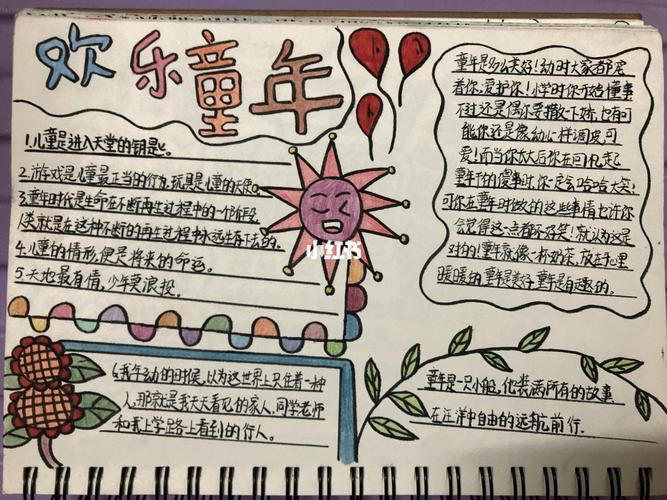 欢乐童年
1.儿童是进入天堂的钥匙。
2.游戏是儿童最正当的行为,玩具是儿童的天使。
3.童年时代是生命在不断再生过程中的一个阶段,
人类就是在这种不断的再生过程中永远生存下去的。
4.儿童的情形,便是将来的命运。
5.天地最有情,少年莫浪投。
小红书
童年是多么美好!幼时大家都宠
着你,爱护你!小学时你开始懂事
不过还是偶尔要撒一下娇,也有可
能你还是像幼儿一样调皮,可
爱!而当你长大后你在回忆起
童年的傻事时你一定会哈哈大笑!
可你在童年时做的这些事情也许你
会觉得这一点都不好笑!就认为这是
对的!童年就像一杯奶茶,放在手里
暖暖的童年是美好,童年是有趣的。
6.我年幼的时候,以为这世界上只住着一种
人,那就是我天天看见的家人,同学老师
和我上学路上看到的行人。
童年是一只小船,他装满所有的故事
在汪洋中自由的远航前行.